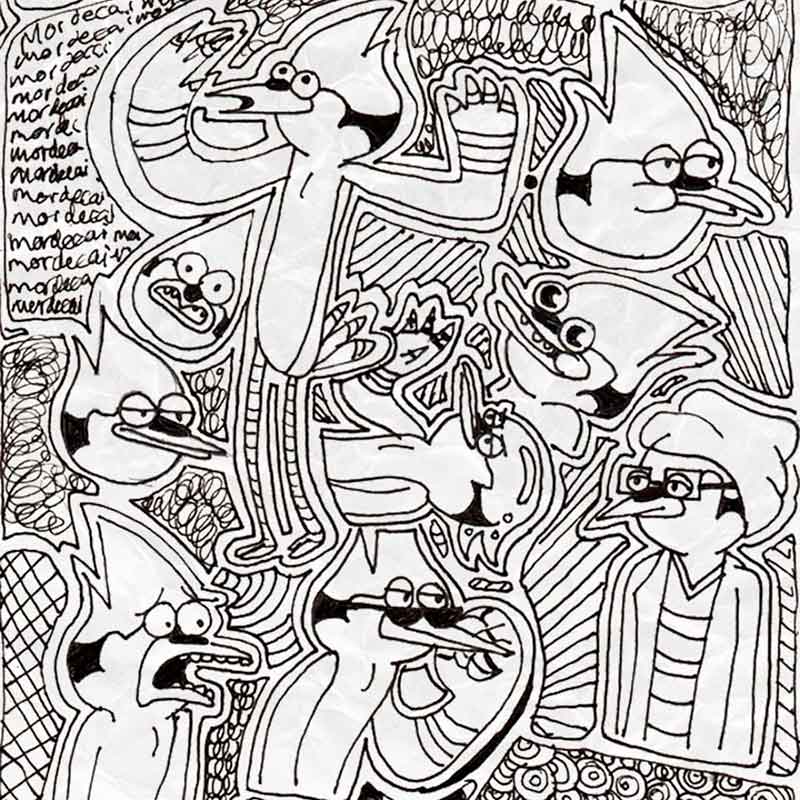 Mordecai mor
mordecaimo
mordecai
mordeca
mordecai
mordec
mordeca
mordecai
mordecai
mordecai
mordecai mor
mordecai m
mordecai
mordecai